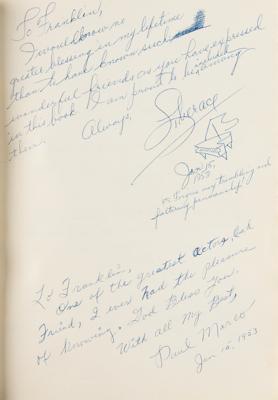 To Franklin,
I would know no
greater blessing in my lifetime
than to have known such
wonderful friends as you have expressed
in this book. I am proud to be among
them.
included
Always,
Liberace
Jan 15,
1953
my trembling and
faltering penmanship
To Franklin,
One of the greatest actors, and
Friend, I ever had the pleasure
of knowing. God Bless You.
With all my Best,
Paul Marco
Jan 15, 1953